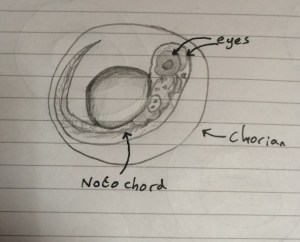 eyes
Chorian
Noto chord